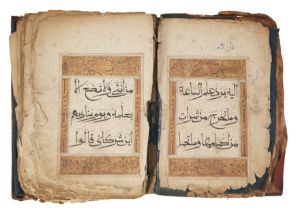 اليه يرد علم الساعة
وما تخرج من ثمرات
من اكمامها وما تحمل
من انثى ولا تضع الا
بعلمه ويوم يناديهم
اين شركائي قالوا